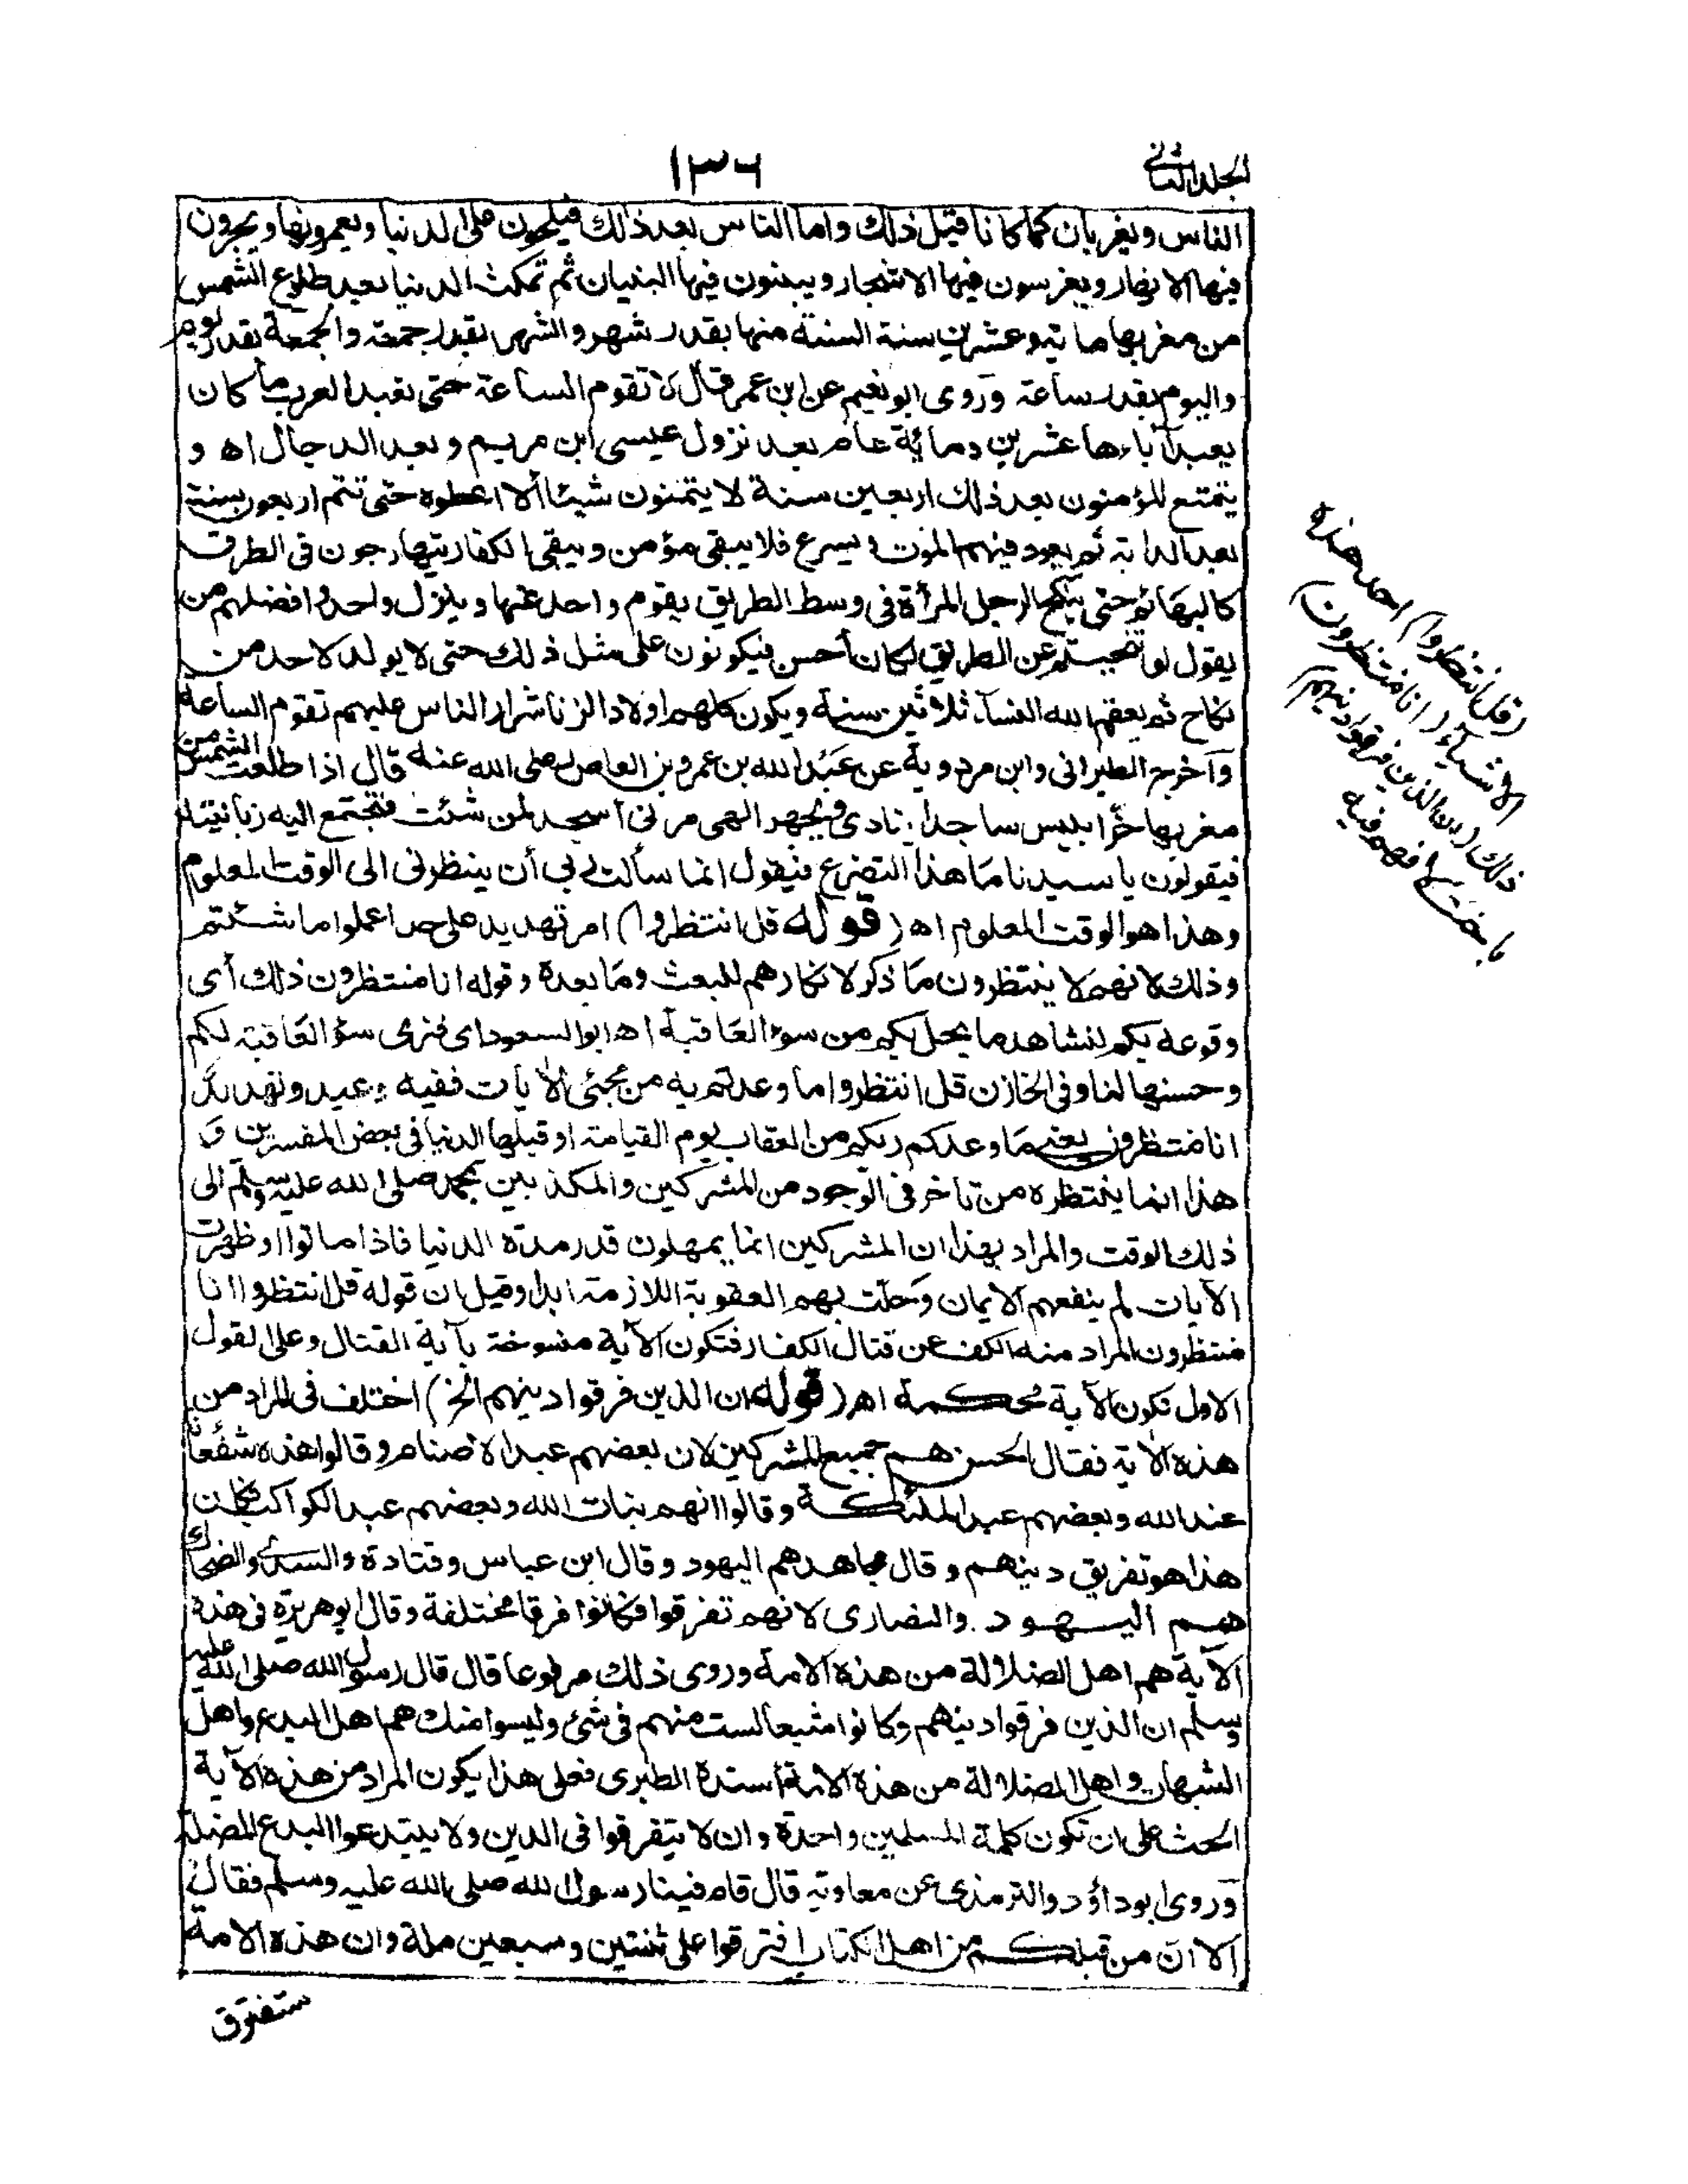 الجلد الثاني
١٣٦
الناس ويغربان كما كانا قبل ذلك واما الناس بعد ذلك فيلحون على الدنيا ويعمرونها ويجرون
فيها الانهار ويغرسون فيها الاشجار ويبنون فيها البنيان ثم تمكث الدنيا بعد طلوع الشمس
من مغربها مائة وعشرين سنة السنة منها بقدر شهر والشهر بقدر جمعة والجمعة بقدر يوم
واليوم بقدر ساعة وروى ابو نعيم عن ابن عمر قال لا تقوم الساعة حتى تعبد العرب ما كان
يعبد آباءها عشرين ومائة عام بعد نزول عيسى ابن مريم وبعد الدجال اه و
يتمتع المؤمنون بعد ذلك اربعين سنة لا يتمنون شيئا ألا اعطوه حتى تتم اربعون سنة
بعد الدابة ثم يعود فيهم الموت ويسرع فلا يبقى مؤمن ويبقى الكفار يتهارجون فى الطرق
كالبهائم حتى ينكح الرجل المرأة فى وسط الطريق يقوم واحد عنها وينزل واحد وافضلهم من
يقول لو تنحيتم عن الطريق لكان أحسن فيكونون على مثل ذلك حتى لا يولد لاحد من
نكاح ثم يعقم الله النسآء ثلاثين سنة ويكون كلهم اولاد الزنا شرار الناس عليهم تقوم الساعة
وآخرج الطبرانى وابن مردوية عن عبد الله بن عمرو بن العاص رضى الله عنه قال اذا طلعت الشمس من
مغربها خرّ ابليس ساجدا ينادى ويجهر الهى مرنى أسجد لمن شئت فتجتمع اليه زبانيته
فيقولون يا سيدنا ما هذا التضرع فيقول انما سألت ربى أن ينظرنى الى الوقت المعلوم
وهذا هو الوقت المعلوم اه (قوله قل انتظروا) امر تهديد على حد اعملوا ما شئتم
وذلك لانهم لا ينتظرون ما ذكر لانكارهم للبعث وما بعده وقوله انا منتظرون ذلك أى
وقوعه بكم لنشاهد ما يحل بكم من سوء العاقبة اه ابو السعود اى فنرى سؤ العاقبة لكم
وحسنها لنا وفى الخازن قل انتظروا ما وعدتم به من مجئ الآيات ففيه وعيد وتهديد
انا منتظرون يعنى ما وعدكم ربكم من العقاب يوم القيامة او قبلها الدنيا فى بعض المفسرين و
هذا انما ينتظره من تاخر فى الوجود من المشركين والمكذبين بمحمد صلى الله عليه وسلم الى
ذلك الوقت والمراد بهذا ان المشركين انما يمهلون قدر مدة الدنيا فاذا ماتوا او ظهرت
الآيات لم ينفعهم الايمان وحلّت بهم العقوبة اللازمة ابدا وقيل ان قوله قل انتظروا انا
منتظرون المراد منه الكف عن قتال الكفار فتكون الآية منسوخة بآية القتال وعلى القول
الاول تكون الآية محكمة اه (قوله ان الذين فرقوا دينهم الخ) اختلف فى المراد من
هذه الآية فقال الحسن هم جميع المشركين لان بعضهم عبد الاصنام وقالوا هذه شفعاؤنا
عند الله وبعضهم عبد الملئكة وقالوا انهم بنات الله وبعضهم عبد الكواكب فكان
هذا هو تفريق دينهم وقال مجاهد هم اليهود وقال ابن عباس وقتادة والسدى والضحاك
هم اليهود والنصارى لانهم تفرقوا فكانوا فرقا مختلفة وقال ابو هريرة فى هذه
الآية هم اهل الضلالة من هذه الامة وروى ذلك مرفوعا قال قال رسول الله صلى الله عليه
وسلم ان الذين فرقوا دينهم وكانوا شيعا لست منهم فى شئ وليسوا منك هم اهل البدع واهل
الشبهات واهل الضلالة من هذه الامة أسنده الطبرى فعلى هذا يكون المراد من هذه الآية
الحث على ان تكون كلمة المسلمين واحدة وان لا يتفرقوا فى الدين ولا يبتدعوا البدع المضلة
وروى ابو داؤد والترمذى عن معاوية قال قام فينا رسول الله صلى الله عليه وسلم فقال
آلا ان من قبلكم من اهل الكتاب افترقوا على ثنتين وسبعين ملة وان هذه الامة
ستفترق
(قل انتظروا) احد هذه
الاشياء (انا منتظرون)
ذلك (ان الذين فرقوا دينهم)
باختلافهم فيه